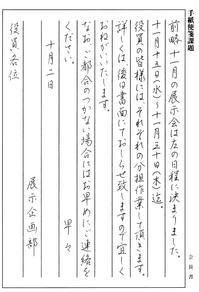 手紙便箋課題
前略十一月の展示会は左の日程に決まりました。
十一月十五日(水)〜十一月三十日(木)迄。
役員の皆様には、それぞれの分担作業して頂きます。
詳しくは、後日書面にておしらせ致しますので宜しく
おねがいいたします。
なお、ご都合のつかない場合にはお早めにご連絡を
ください。
早々
十月二日
展示企画部
役員各位